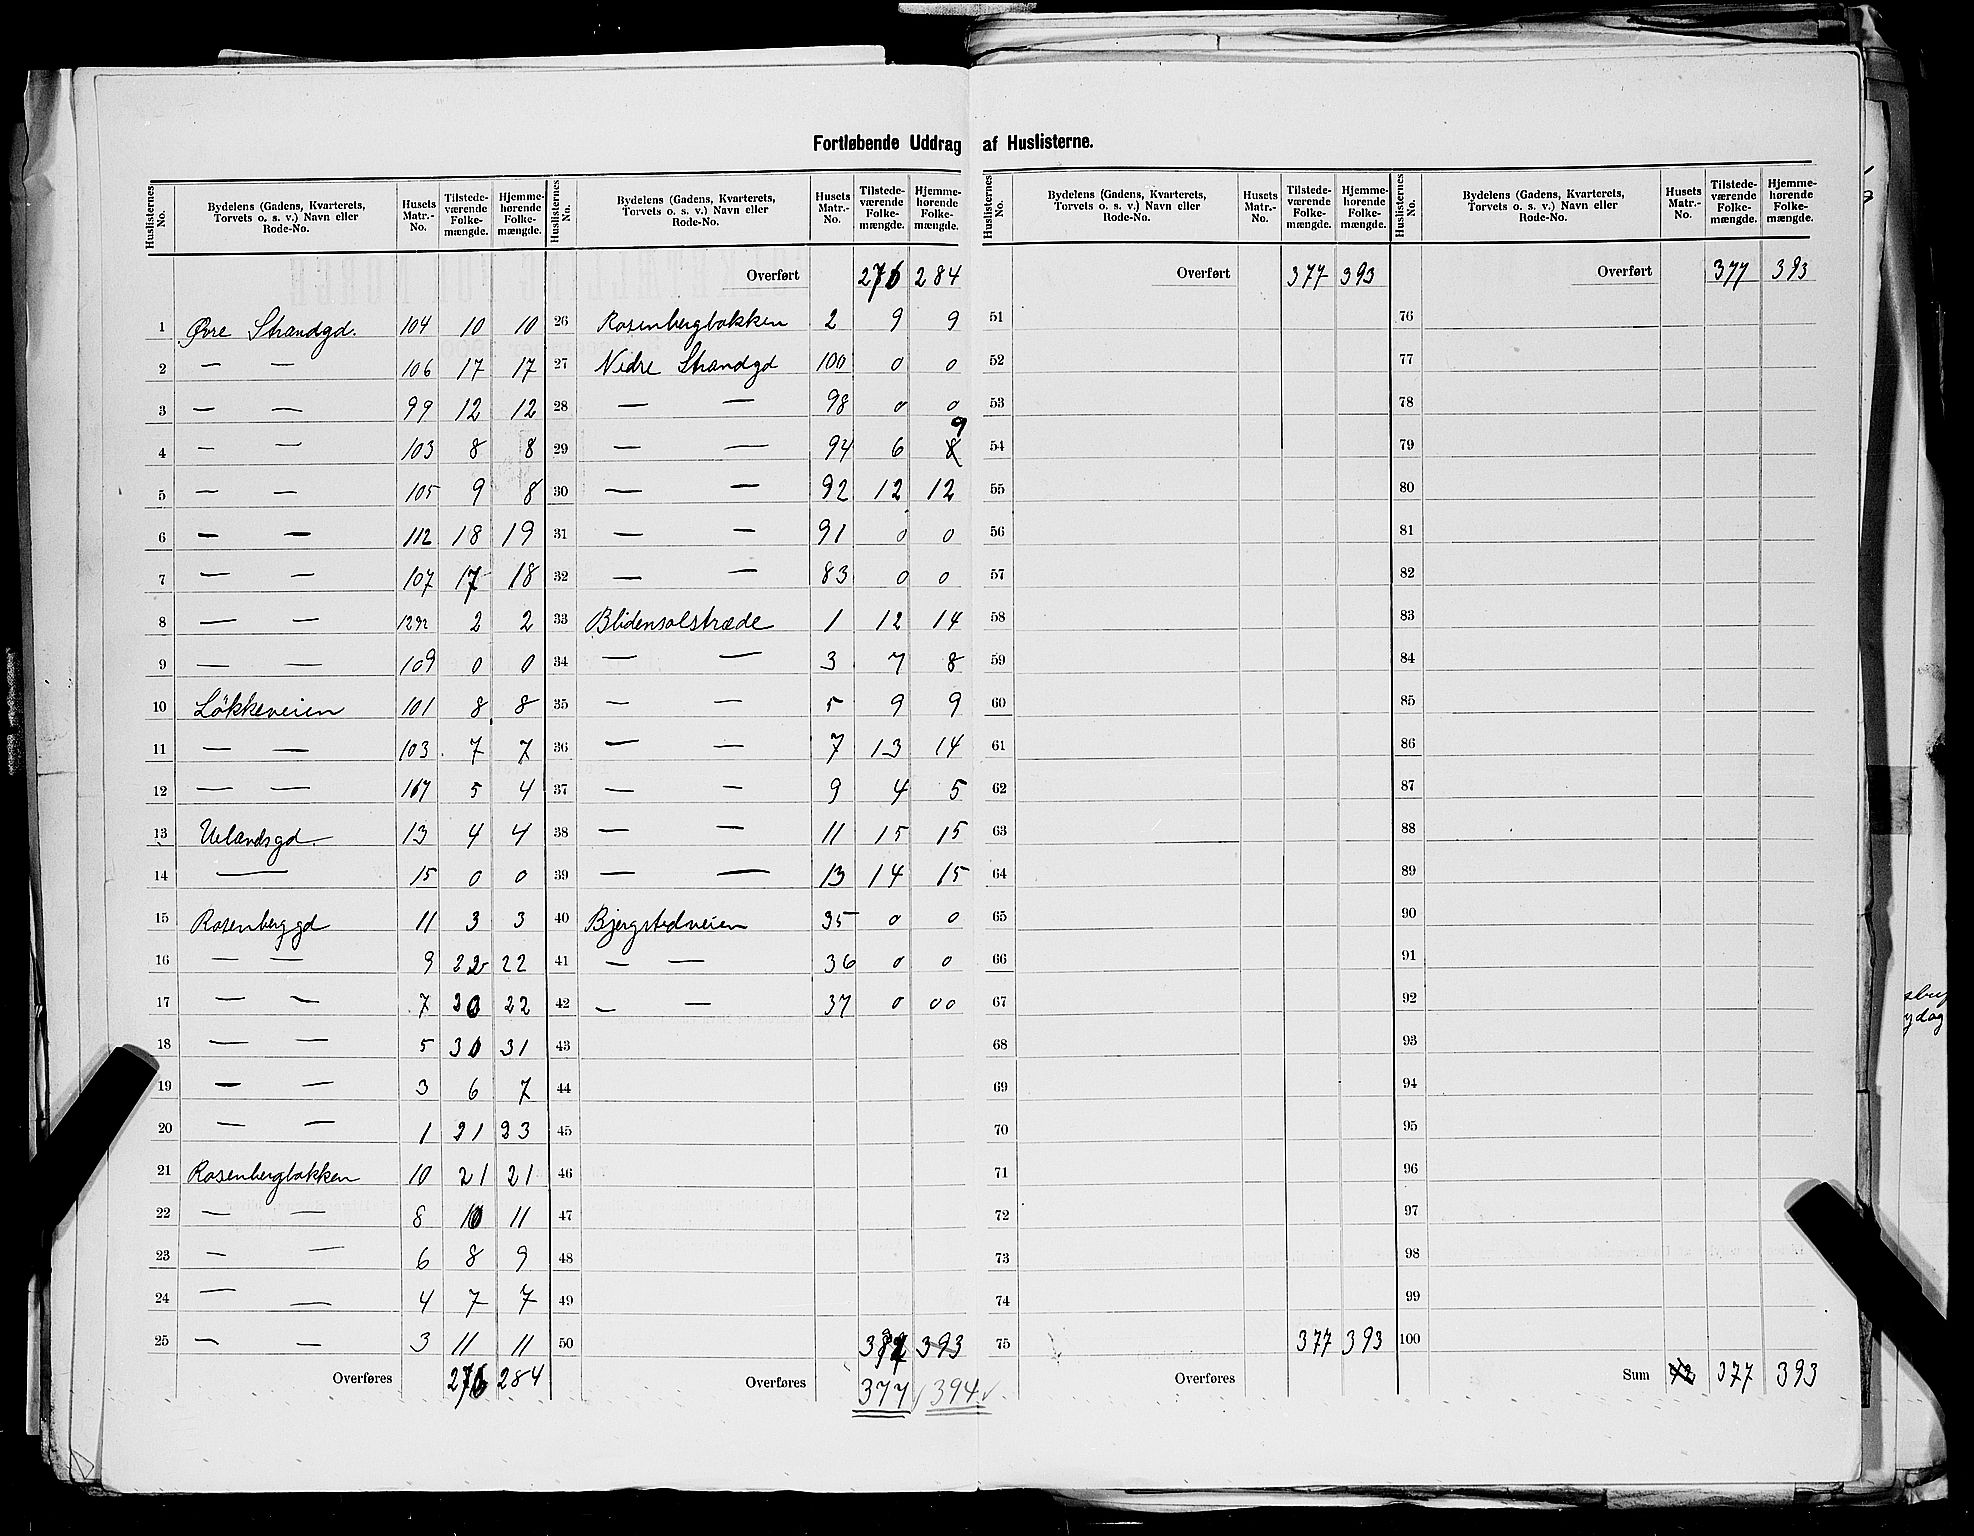 Fortløbende Uddrag af Huslisterne.
Huslisternes No. | Bydelens (Gadens, Kvarterets, Torvets o. s. v.) Navn eller Rode-No. | Husets Matr.-No. | Tilstede-værende Folke-mængde. | Hjemme-hørende Folke-mængde.
1 Øvre Strandgd. 104 10 10
2 — — 106 17 17
3 — — 99 12 12
4 — — 103 8 8
5 — — 105 9 8
6 — — 112 18 19
7 — — 107 17 18
8 — — 2 2
9 — — 109 0 0
10 Løkkeveien 101 8 8
11 — — 103 7 7
12 — — 107 5 4
13 Uelandsgd. 13 4 4
14 — 15 0 0
15 Rosenberggd 11 3 3
16 — — 9 22 22
17 — — 7 20 22
18 — — 5 30 31
19 — — 3 6 7
20 — — 1 21 23
21 Rosenbergbakken 10 21 21
22 — — 8 10 11
23 — — 6 8 9
24 — — 4 7 7
25 — — 3 11 11
Overføres 276 284
Huslisternes No. | Bydelens (Gadens, Kvarterets, Torvets o. s. v.) Navn eller Rode-No. | Husets Matr.-No. | Tilstede-værende Folke-mængde. | Hjemme-hørende Folke-mængde.
Overført 276 284
26 Rosenbergbakken 2 9 9
27 Nedre Strandgd 100 0 0
28 — — 98 0 0
29 — — 94 6 8 9
30 — — 92 12 12
31 — — 91 0 0
32 — — 83 0 0
33 Blidensolstræde 1 12 14
34 — — 3 7 8
35 — — 5 9 9
36 — — 7 13 14
37 — — 9 4 5
38 — — 11 15 15
39 — — 13 14 15
40 Bjergstedveien 35 0 0
41 — — 36 0 0
42 — — 37 0 00
43
44
45
46
47
48
49
50 393
Overføres 377 394
Huslisternes No. | Bydelens (Gadens, Kvarterets, Torvets o. s. v.) Navn eller Rode-No. | Husets Matr.-No. | Tilstede-værende Folke-mængde. | Hjemme-hørende Folke-mængde.
Overført 377 393
51
52
53
54
55
56
57
58
59
60
61
62
63
64
65
66
67
68
69
70
71
72
73
74
75 377 393
Overføres
Huslisternes No. | Bydelens (Gadens, Kvarterets, Torvets o. s. v.) Navn eller Rode-No. | Husets Matr.-No. | Tilstede-værende Folke-mængde. | Hjemme-hørende Folke-mængde.
Overført 377 393
76
77
78
79
80
81
82
83
84
85
86
87
88
89
90
91
92
93
94
95
96
97
98
99
100
Sum 42 377 393